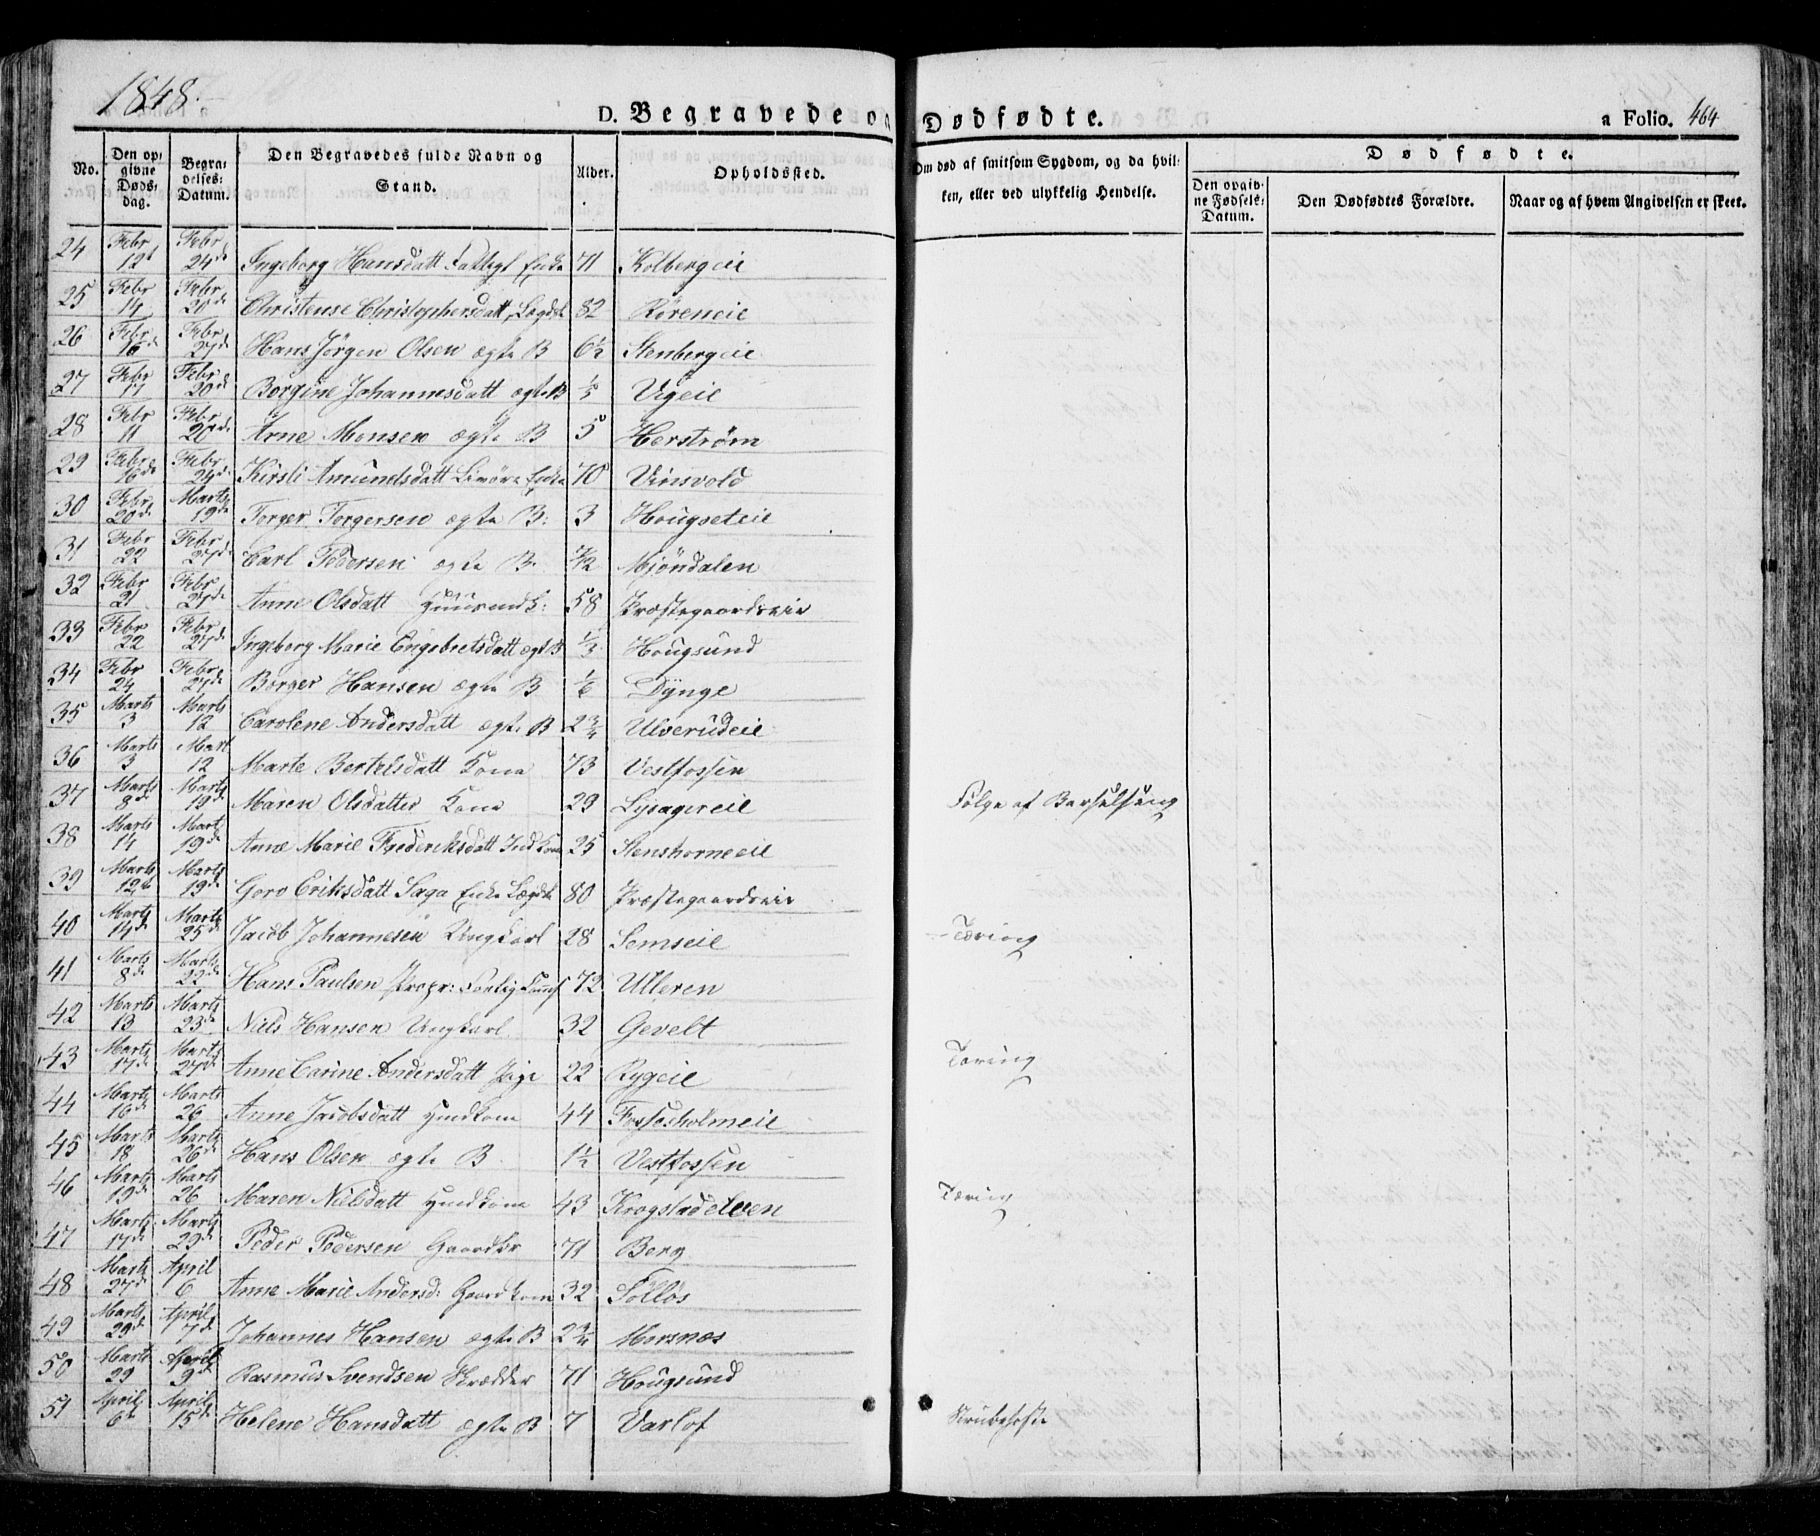 1848.
D. Begravede og Dødfødte. a Folio. 464
No. | Den opgivne Dødsdag. | Begravelses-Datum. | Den Begravedes fulde Navn og Stand. | Alder. | Opholdssted. | Om død af smitsom Sygdom, og da hvilken, eller ved ulykkelig Hendelse. | Dødfødte.
Den opgivne Fødsels-Datum. | Den Dødfødtes Forældre. | Naar og af hvem Angivelsen er skeet.
24 Febr 12t Febr 24de Ingeborg Hansdatt Enke 71 Kolbergeie
25 Febr 14 Febr 20de Christense Christophersdatt, Lægdsl 82 Røreneie
26 Febr 16de Febr 27de Hans Jörgen Olsen ægte B 6½ Stenbergeie
27 Febr 17 Febr 20de Borgine Johannesdatt ægte B 1/5 Vigeie
28 Febr 11 Febr 20de Arne Monsen ægte B 5 Herstrøm
29 Febr 16de Febr 24de Kirsti Amundsdatt Enke 70 Vinsvold
30 Febr 20de Marts 19de Torger Torgersen ægte B: 3 Hougseteie
31 Febr 22 Febr 27de Carl Pedersen ægte B. Mjöndalen
32 Febr 21 Febr 27de Anne Olsdatt 58 Præstegaardseie
33 Febr 22 Febr 27de Ingeborg Marie Engebretsdatt ægte B 1/3 Hougsund
34 Febr 24 Febr 27de Börger Hansen ægte B 1/6 Dynge
35 Marts 3 Marts 12 Carolene Andersdatt ægte B 2¾ Ulverudeie
36 Marts 3 Mart 12 Marte Bertelsdatt Kone 73 Vestfossen
37 Marts 8de Marts 19de Maren Olsdatter Kone 29 Lysagereie Følge af Barselseng
38 Marts 14 Marts 19de Anne Marie Frederiksdatt Ind Kone 25 Stenshorneeie
39 Marts 12t Marts 19de Goro Eriksdatt Saga Enke Lægdsl 80 Præstegaardseie
40 Marts 14de Marts 25de Jacob Johannesen Ungkarl 28 Semseie Tæring
41 Marts 8de Marts 22de Hans Paulsen Propr: 72 Ulleren
42 Marts 13 Marts 23de Niels Hansen Ungkarl 32 Gevelt
43 Marts 17de Marts 27de Anne Carine Andersdatt Pige 22 Rygeie Tæring
44 Marts 16de Marts 26 Anne Jacobsdatt Huusmdkone 44 Fossesholmeie
45 Marts 18 Marts 26de Hans Olsen ægte B 1½ Vestfossen
46 Marts 19de Marts 26 Maren Nielsdatt 43 Krogstadelven Tæring
47 Marts 17de Marts 29de Peder Pedersen Gaardbr 71 Berg
48 Marts 27de April 6 Anne Marie Andersd: Gaardkone 32 Solløs
49 Marts 29de April 7de Johannes Hansen ægte B 2¾ Morsnæs
50 Marts 29 April 9de Rasmus Svendsen Skrædder 71 Hougsund
51 April 6te April 15de Helene Hansdatt ægte B 7 Varlof Strubehoste